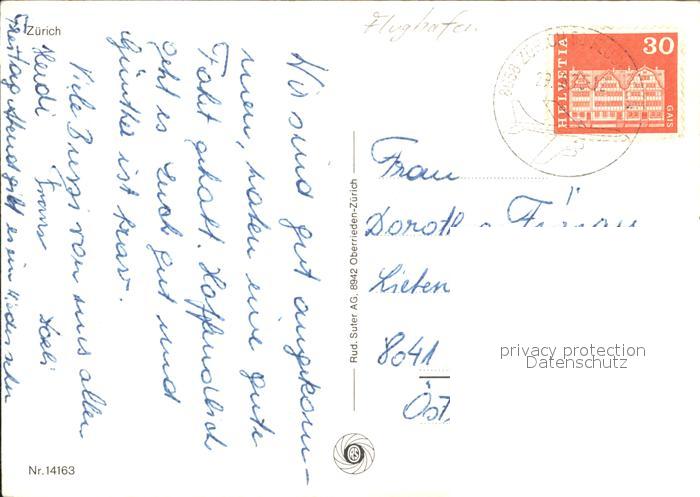 Zürich
Flughafen
Wir sind gut angekom-
men, haben eine gute
Fahrt gehabt. Hoffendlich
geht es Euch gut und
Günther ist brav.
Viele Bussi von uns allen
Heidi Franz
Freitag Abend gibt es ein
HELVETIA
30
GAIS
8058 ZÜRICH
Frau
Lieben
8041
Öst
privacy protection
Datenschutz
Rud. Suter AG, 8942 Oberrieden-Zürich
Nr. 14163